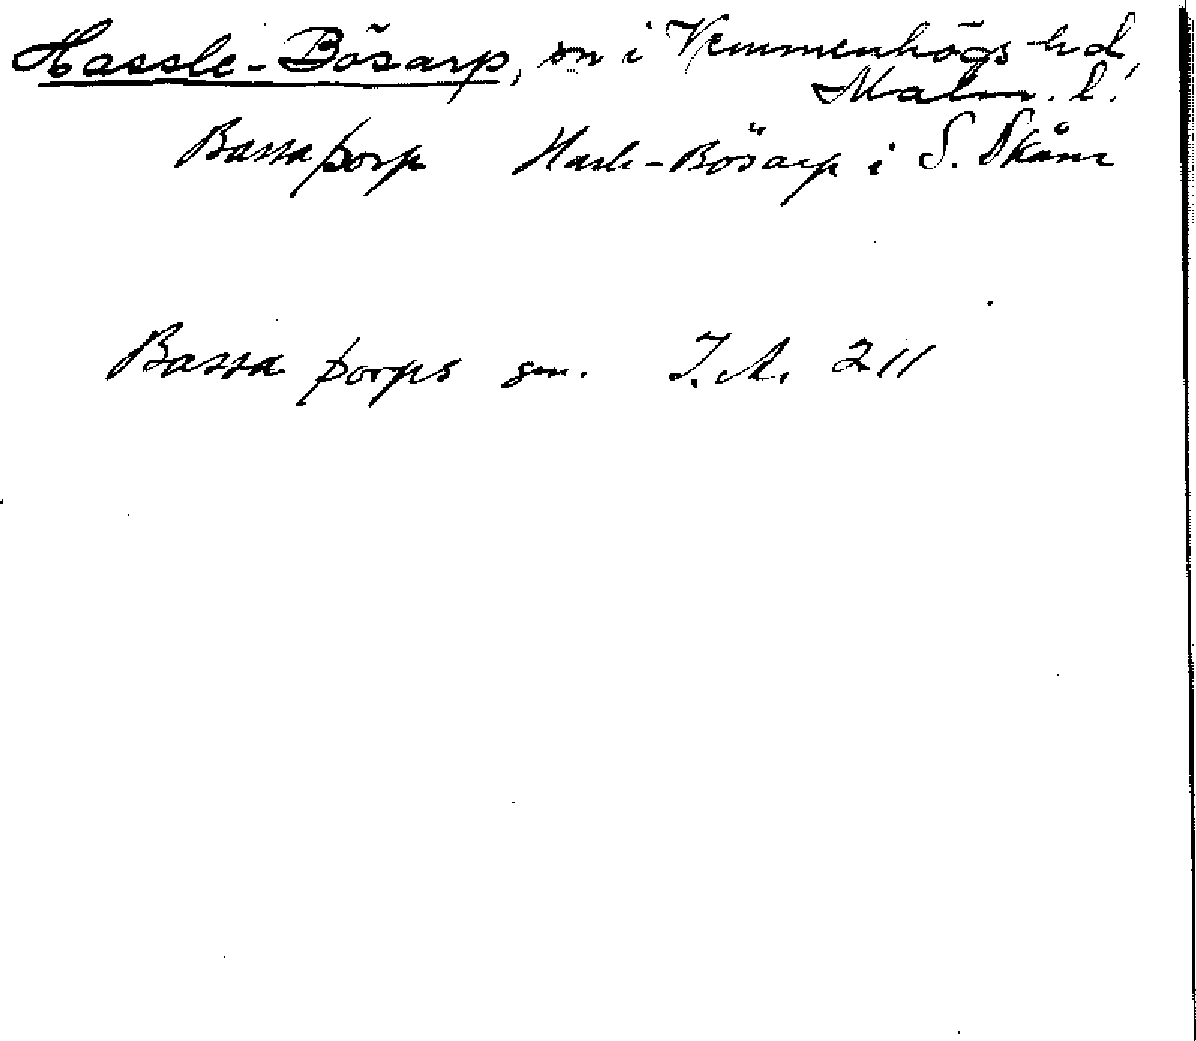 Hassle-Bösarp, sn i Vemmenhögs hd,
Malm. l.
Bassaþorp Hasle-Bösarp i S. Skåne
Bassa þorps gen. I. A. 211